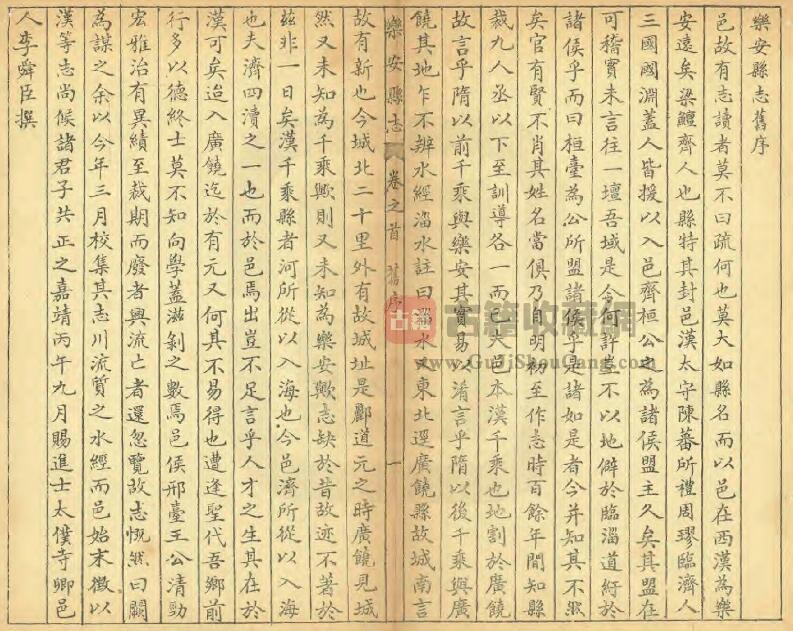 樂安縣志舊序
邑故有志讀者莫不曰疏何也莫大如縣名而以邑在西漢為樂
安遠矣梁鱣齊人也縣特其封邑漢太守陳蕃所禮周璆臨濟人
三國國淵蓋人皆援以入邑齊桓公之為諸侯盟主久矣其盟在
可稽實未言往一壇吾域是令何許豈不以地僻於臨淄道紆於
諸侯乎而曰桓臺為公所盟諸侯乎是諸如是者今并知其不然
矣官有賢不肖其姓名當俱乃自明初至作志時百餘年間知縣
裁九人丞以下至訓導各一而已夫邑本漢千乘也地割於廣饒
故言乎隋以前千乘與樂安其實易以淆言乎隋以後千乘與廣
饒其地乍不辨水經淄水註曰淄水又東北逕廣饒縣故城南言
樂安縣志 卷之首 舊序 一
故有新也今城北二十里外有故城址是酈道元之時廣饒見城
然又未知為千乘歟則又未知為樂安歟志缺於昔故迹不著於
茲非一日矣漢千乘縣者河所從以入海也今邑濟所從以入海
也夫濟四瀆之一也而於邑焉出豈不足言乎人才之生其在於
漢可矣迨入廣饒迄於有元又何其不易得也遭逢聖代吾鄉前
行多以德終士莫不知向學蓋滋剝之數焉邑侯邢臺王公清勁
宏雅治有異績至裁期而廢者興流亡者還忽覽故志慨然曰闕
為謀之余以今年三月校集其志川流質之水經而邑始末徵以
漢等志尚候諸君子共正之嘉靖丙午九月賜進士太僕寺卿邑
人李舜臣撰
古籍
古籍收藏網
www.GuJiShouCang.com